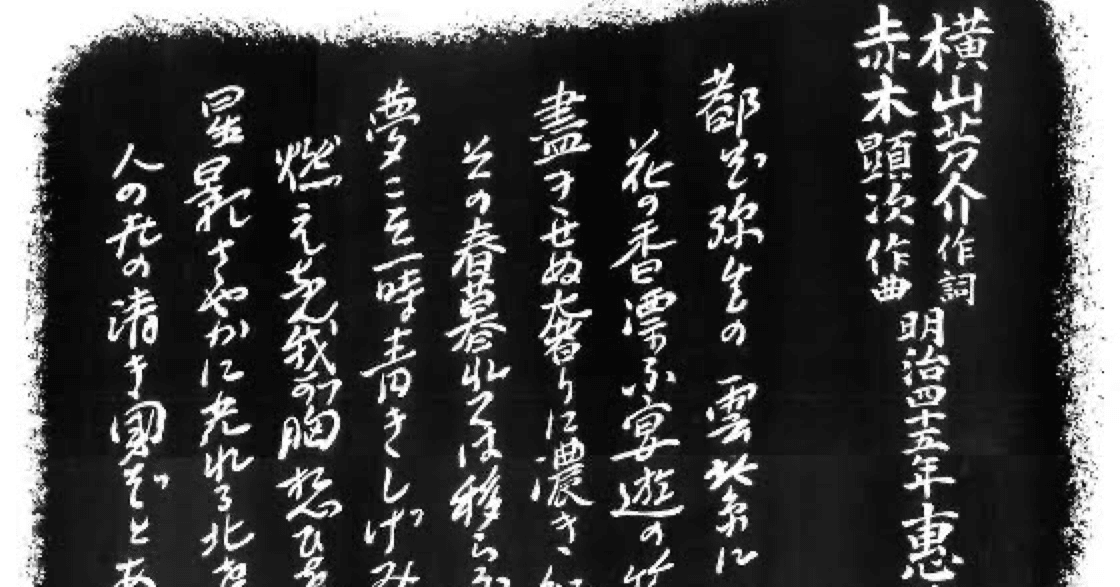 横山芳介作詞
赤木顕次作曲
明治四十五年惠
都ぞ弥生の雲紫に
花の香漂ふ宴遊の
盡きせぬ奢りに濃き
その春暮れては移らふ
夢こそ一時青きしげみ
燃えなん我が胸想ひを
星影さやかに光れる北
人の世の清き國ぞとあ